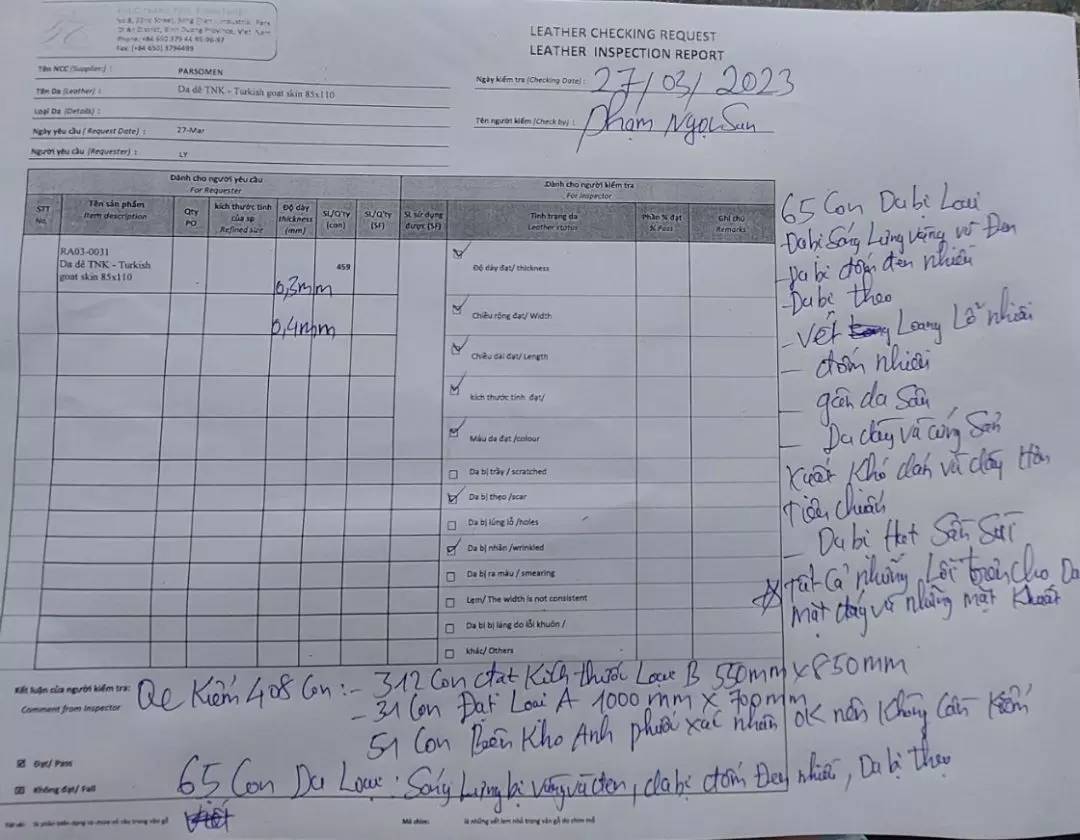 No.8, 23rd Street, Song Than 1 Industrial Park
Di An District, Binh Duong Province, Viet Nam
Phone: +84 650 379 44 95-96-97
Fax: (+84 650) 3794499
LEATHER CHECKING REQUEST
LEATHER INSPECTION REPORT
Tên NCC (Supplier:) : PARSOMEN
Tên Da (Leather) : Da dê TNK - Turkish goat skin 85x110
Loại Da (Details) :
Ngày yêu cầu ( Request Date) : 27-Mar
Người yêu cầu (Requester) : LY
Ngày kiểm tra (Checking Date) : 27/03/2023
Tên người kiểm (Check by) : Phạm Ngọc San
Dành cho người yêu cầu
For Requester
Dành cho người kiểm tra
For Inspector
STT
No.
Tên sản phẩm
Item description
Qty
PO
kích thước tinh
của sp
Refined size
Độ dày
thickness
(mm)
SL/Q'ty
(con)
SL/Q'ty
(SF)
SL sử dụng
được (SF)
Tình trạng da
Leather status
Phần % đạt
% Pass
Ghi chú
Remarks
RA03-0031
Da dê TNK - Turkish
goat skin 85x110
459
0,3mm
0,4mm
Độ dày đạt/ thickness
Chiều rộng đạt/ Width
Chiều dài đạt/ Length
kích thước tinh đạt/
Màu da đạt /colour
Da bị trầy / scratched
Da bị thẹo /scar
Da bị lủng lỗ /holes
Da bị nhăn /wrinkled
Da bị ra màu / smearing
Lem/ The width is not consistent
Da bị bị láng do lỗi khuôn /
khác/ Others
65 Con Da bị Loại
- Da bị Sống Lưng vựng và Đen
- Da bị đốm đen nhiều
- Da bị thẹo
- Vết Loang Lổ nhiều
- đốm nhiều
- gân da Sâu
- Da dày và cứng Sản
xuất Khó dán và dày Hơn
Tiêu chuẩn
- Da bị Hạt Sần Sùi
Tất Cả những Lỗi trên cho Da
mặt đáy và những mặt Khuất
Kết luận của người kiểm tra:
Comment from Inspector
Qc Kiểm 408 Con :- 312 Con đạt Kích thước Loại B 550mm x 850mm
- 31 Con Đạt Loại A 1000 mm x 700mm
51 Con Bên Kho Anh phước xác nhận OK nên Không Cần Kiểm
65 Con Da Loại : Sống Lưng bị vựng và đen, da bị đốm Đen nhiều, Da bị thẹo
Đạt/ Pass
Không đạt/ Fail